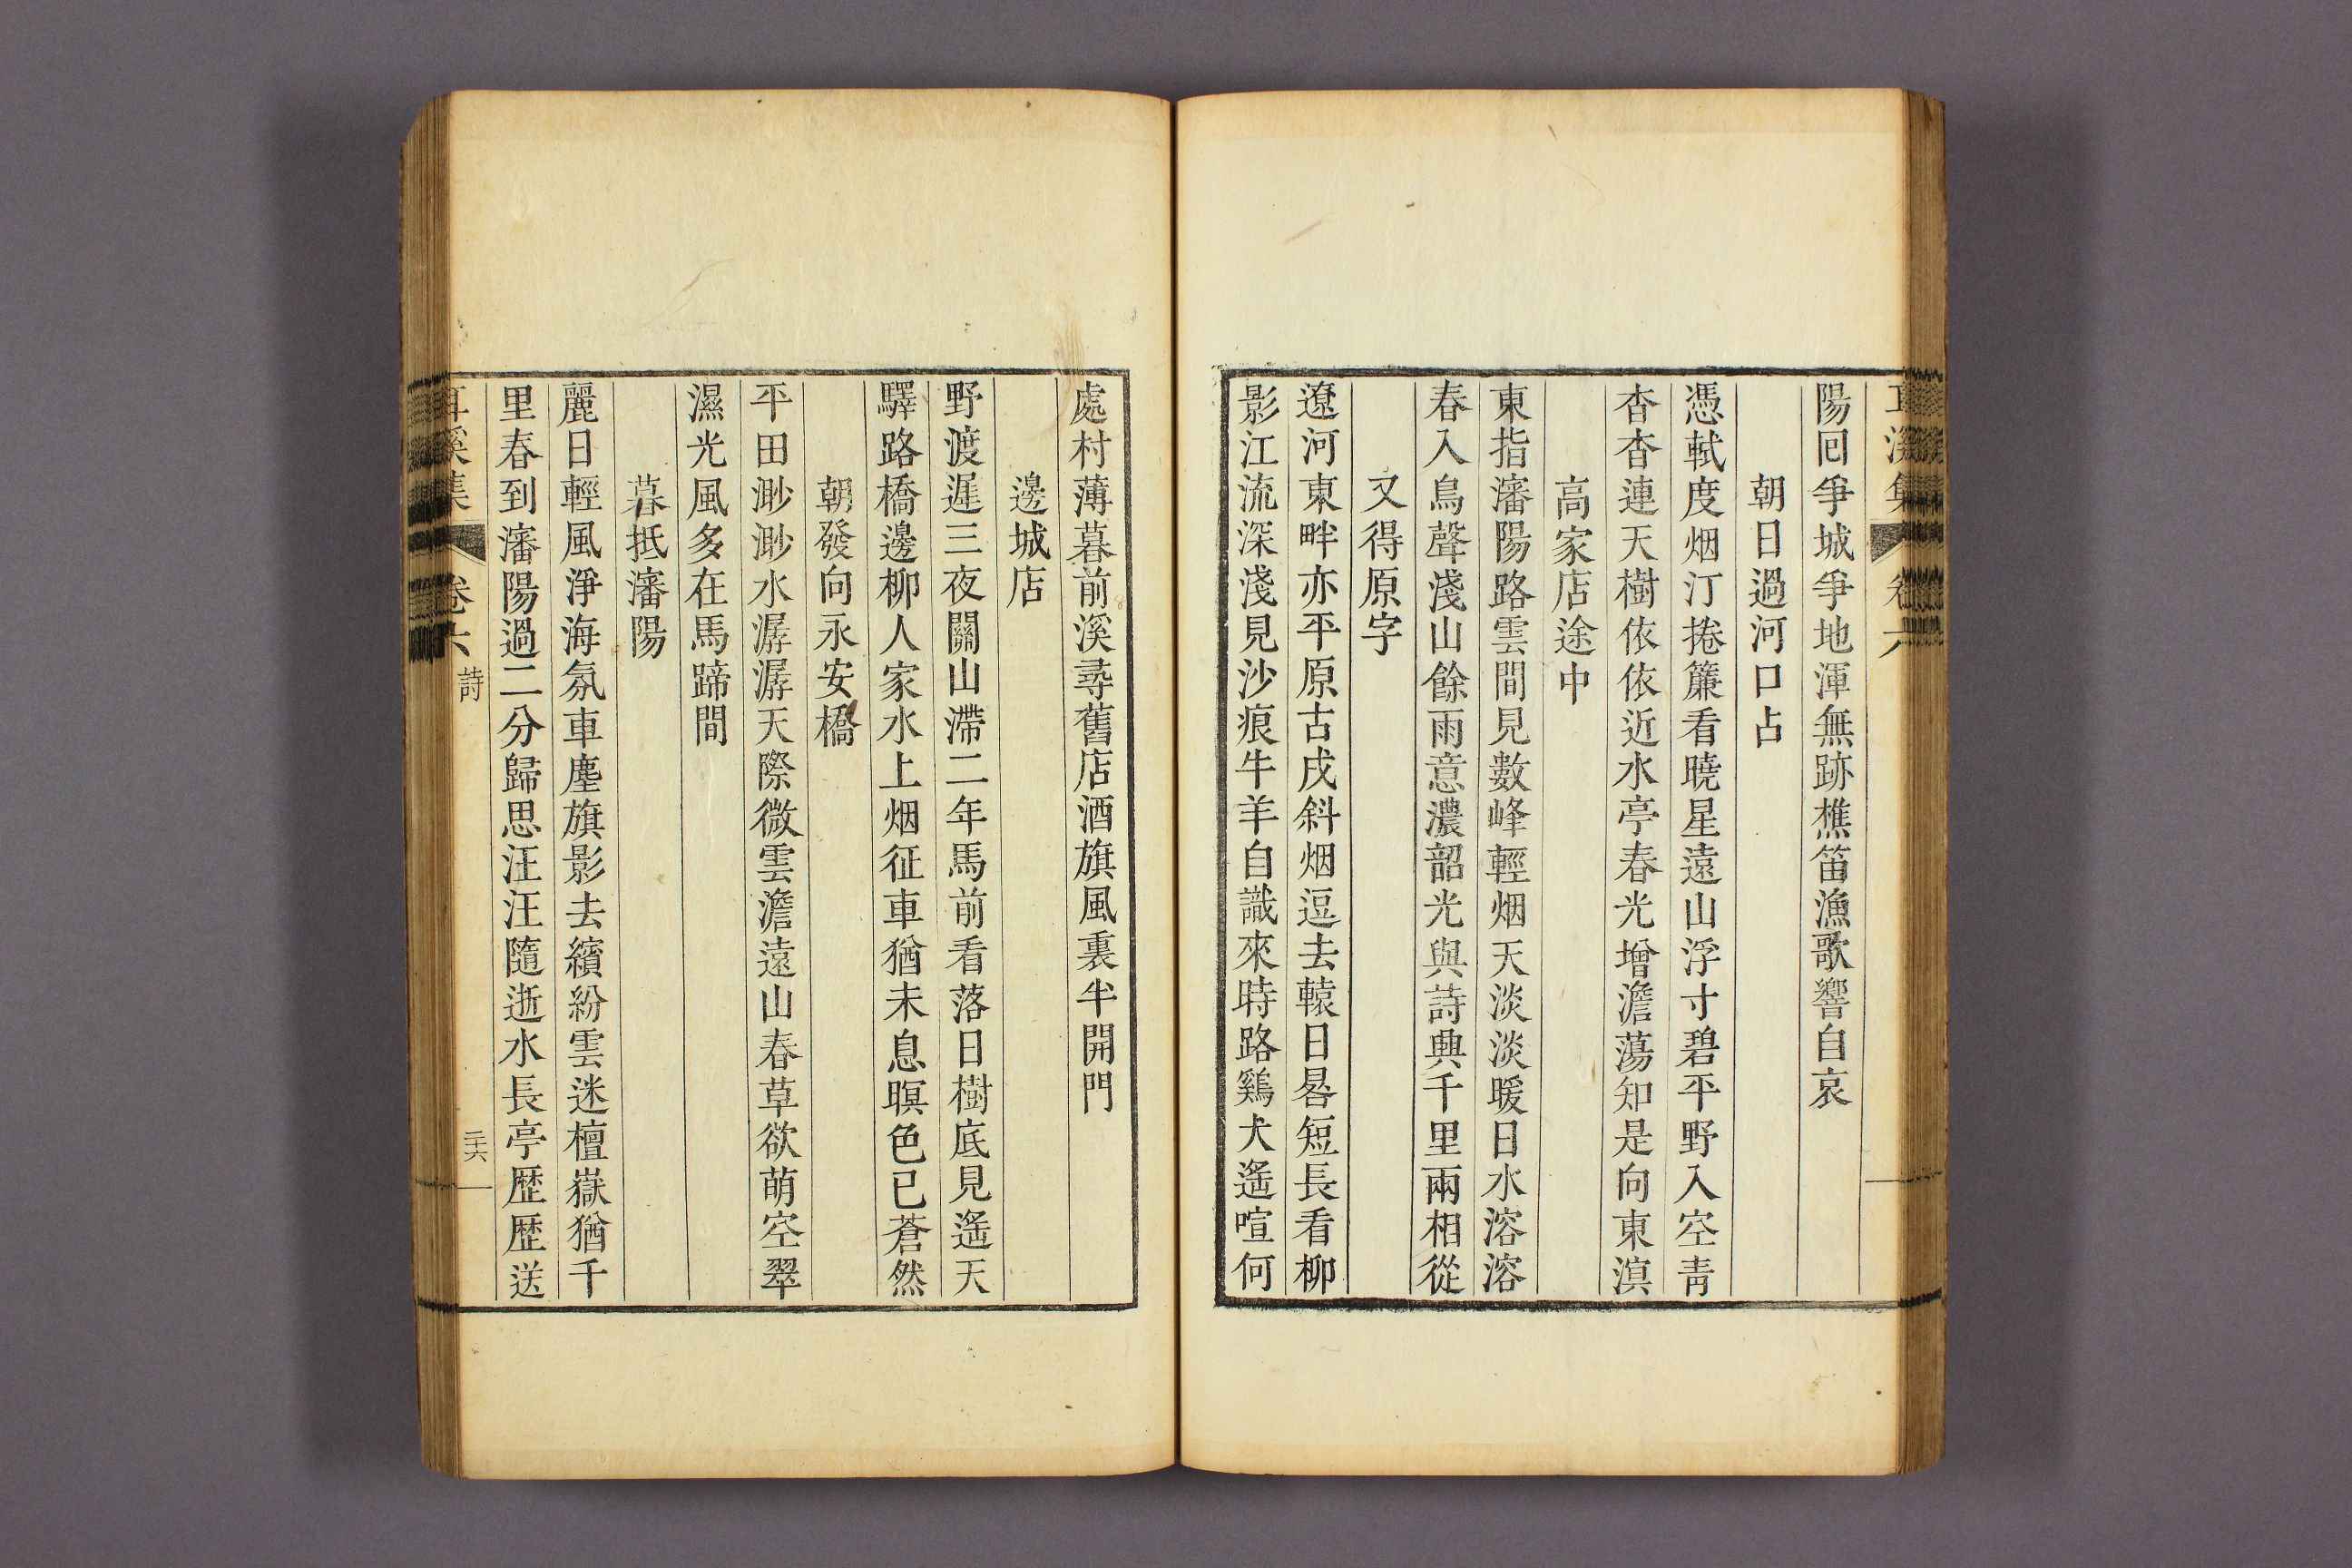 陽回爭城爭地渾無跡樵笛漁歌響自哀
朝日過河口占
憑軾度烟汀捲簾看曉星遠山浮寸碧平野入空靑
杳杳連天樹依依近水亭春光增澹蕩知是向東滇
高家店途中
東指瀋陽路雲間見數峰輕烟天淡淡暖日水溶溶
春入鳥聲淺山餘雨意濃韶光與詩興千里兩相從
又得原字
遼河東畔亦平原古戍斜烟逗去轅日晷短長看柳
影江流深淺見沙痕牛羊自識來時路鷄犬遙喧何
處村薄暮前溪尋舊店酒旗風裏半開門
邊城店
野渡遲三夜關山滯二年馬前看落日樹底見遙天
驛路橋邊柳人家水上烟征車猶未息暝色已蒼然
朝發向永安橋
平田渺渺水潺潺天際微雲澹遠山春草欲萌空翠
濕光風多在馬蹄間
暮抵瀋陽
麗日輕風淨海氛車塵旗影去繽紛雲迷檀嶽猶千
里春到瀋陽過二分歸思汪汪隨逝水長亭歷歷送
耳溪集 卷六 詩 二十六